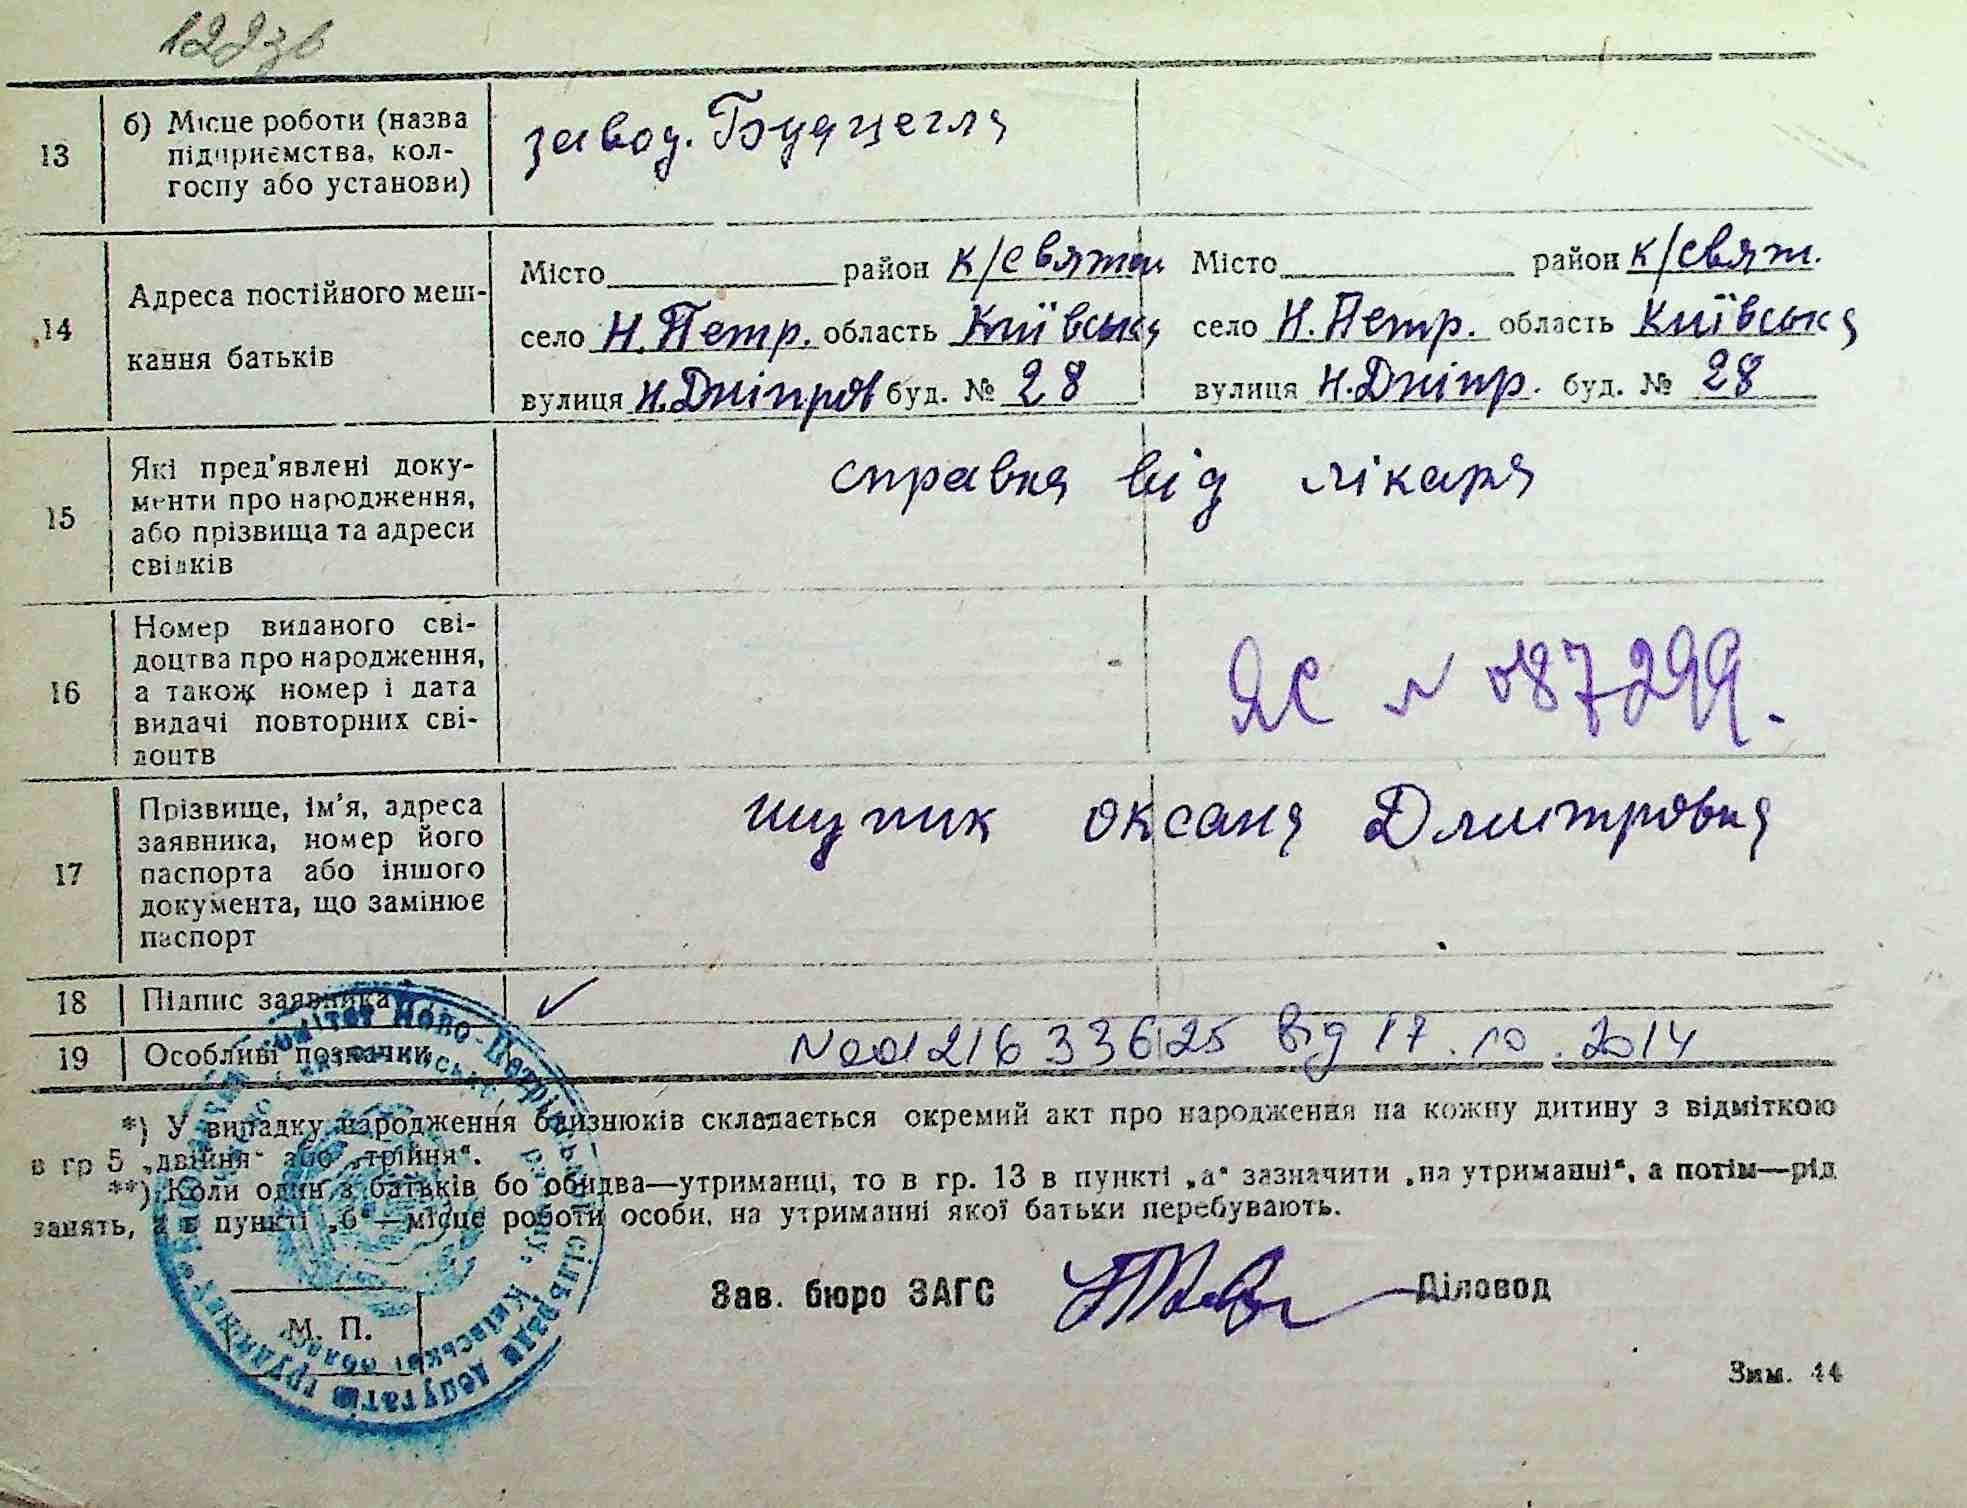 122зв
13
б) Місце роботи (назва
підприємства, кол-
госпу або установи)
завод. Будцегла
14
Адреса постійного меш-
кання батьків
Місто район к/святош
село Н.Петр. область Київська
вулиця Н.Дніпров буд. № 28
Місто район к/свят.
село Н.Петр. область Київська
вулиця Н.Дніпр. буд. № 28
15
Які пред'явлені доку-
менти про народження,
або прізвища та адреси
свідків
справка від лікаря
16
Номер виданого сві-
доцтва про народження,
а також номер і дата
видачі повторних сві-
доцтв
ЯС N 087299.
17
Прізвище, ім'я, адреса
заявника, номер його
паспорта або іншого
документа, що замінює
паспорт
Оксана Дмитровна
18
Підпис заявника
19
Особливі позначки
N 001216 33625 від 17.10.2014
*) У випадку народження близнюків складається окремий акт про народження на кожну дитину з відміткою
в гр 5 „двійня“ або „трійня“.
**) Коли один з батьків бо обидва—утриманці, то в гр. 13 в пункті „а“ зазначити „на утриманні“, а потім—рід
занять, а в пункті „б“—місце роботи особи, на утриманні якої батьки перебувають.
Зав. бюро ЗАГС
Діловод
М. П.
Ново-Петрівської сільради депутатів трудящих
Київської області
Зим. 44